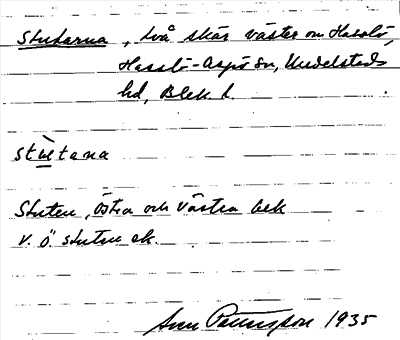 Stutarna, två skär väster om Hasslö,
Hasslö-Aspö sn, Medelstads
hd, Blek. l.
stùtana
Stuten, Östra och Västra bek
V. Ö. Stuten ek.
1935